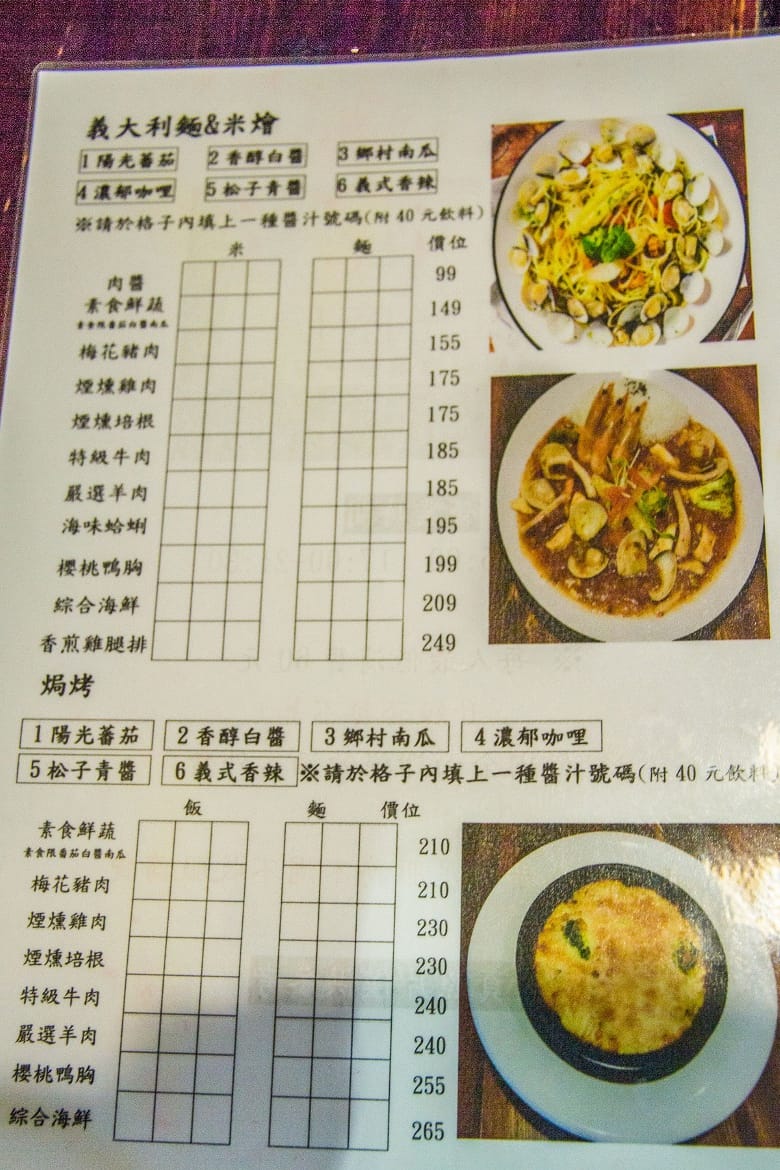 義大利麵&米燴
1 陽光蕃茄 2 香醇白醬 3 鄉村南瓜
4 濃郁咖哩 5 松子青醬 6 義式香辣
※請於格子內填上一種醬汁號碼(附 40 元飲料)
米 麵 價位
肉醬 99
素食鮮蔬 149
素食限番茄白醬南瓜
梅花豬肉 155
煙燻雞肉 175
煙燻培根 175
特級牛肉 185
嚴選羊肉 185
海味蛤蜊 195
櫻桃鴨胸 199
綜合海鮮 209
香煎雞腿排 249
焗烤
1 陽光蕃茄 2 香醇白醬 3 鄉村南瓜 4 濃郁咖哩
5 松子青醬 6 義式香辣 ※請於格子內填上一種醬汁號碼(附 40 元飲料)
飯 麵 價位
素食鮮蔬 210
素食限番茄白醬南瓜
梅花豬肉 210
煙燻雞肉 230
煙燻培根 230
特級牛肉 240
嚴選羊肉 240
櫻桃鴨胸 255
綜合海鮮 265